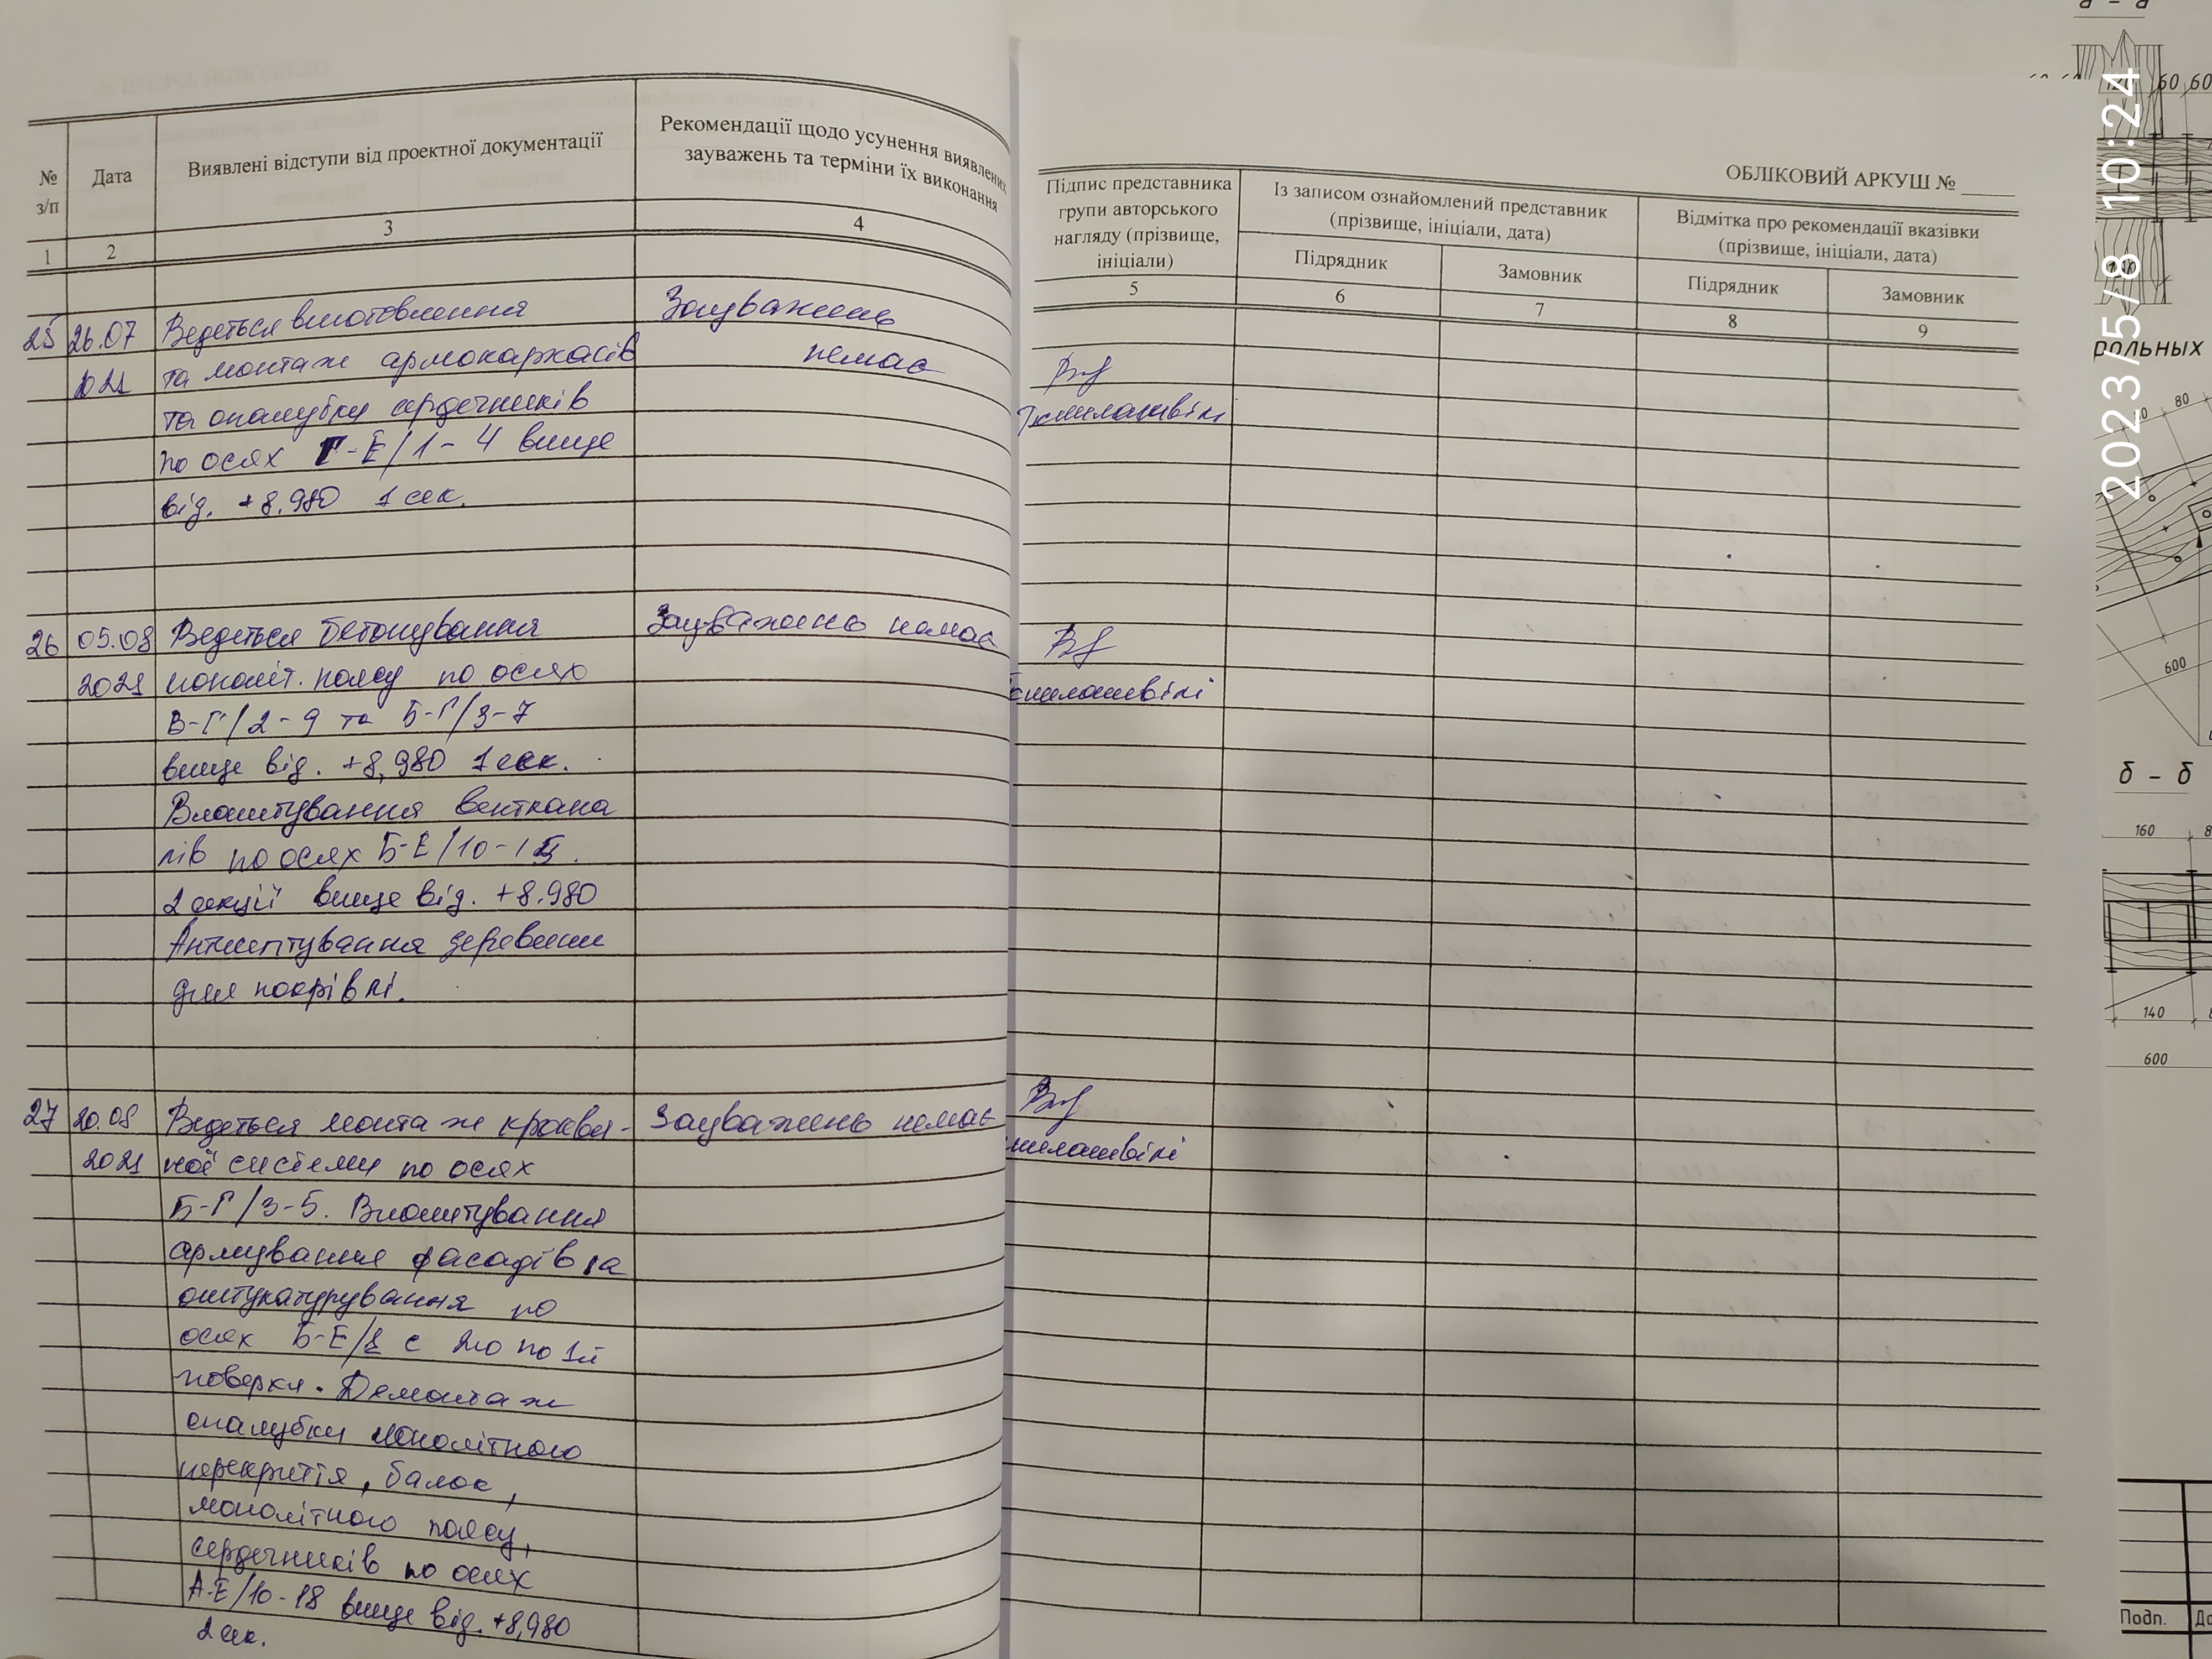 №
з/п
Дата
Виявлені відступи від проектної документації
Рекомендації щодо усунення виявлених
зауважень та терміни їх виконання
1
2
3
4
25
26.07
2021
Ведеться виготовлення
та монтаж армокаркасів
та опалубку сердечників
по осях Г-Е/1-4 вище
від. +8.980 1 сек.
Зауважень
немає
26
05.08
2021
Ведеться бетонування
моноліт. поясу по осях
В-Г/2-9 та Б-Г/3-7
вище від. +8,980 1 сек.
Влаштування венткана
лів по осях Б-Е/10-
2 секції вище від. +8.980
Антисептування деревини
для покрівлі.
Зауважень немає
27
20.08
2021
Ведеться монтаж кроквя-
ної системи по осях
Б-Г/3-5. Влаштування
армування фасадів та
оштукатурування по
осях Б-Е/ с 2го по 1й
поверхи. Демонтаж
опалубки монолітного
перекриття, балок,
монолітного поясу,
сердечників по осях
А-Е/10-18 вище від. +8,980
2 сек.
Зауважень немає
ОБЛІКОВИЙ АРКУШ № ____
Підпис представника
групи авторського
нагляду (прізвище,
ініціали)
Із записом ознайомлений представник
(прізвище, ініціали, дата)
Відмітка про рекомендації вказівки
(прізвище, ініціали, дата)
Підрядник
Замовник
Підрядник
Замовник
5
6
7
8
9
а - а
60 60
2023/5/8 10:24
рольных
80
600
б - б
160
140
600
Подп.